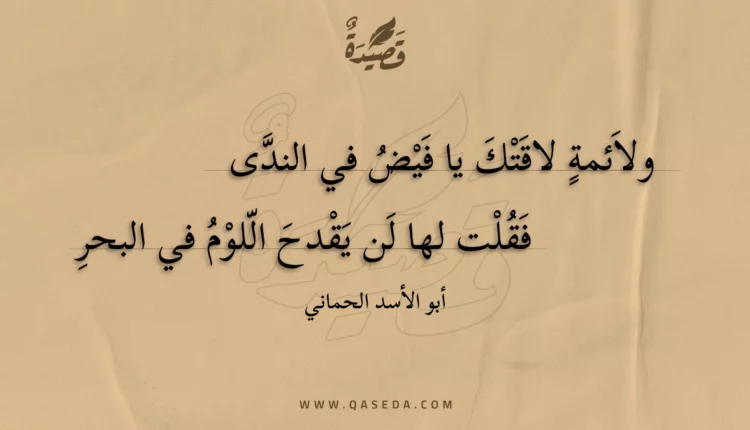 قَصِيْدَةٌ
ولاَئمةٍ لاقَتْكَ يا فَيْضُ في الندَّى
فَقُلْت لها لَن يَقْدحَ الّلوْمُ في البحرِ
أبو الأسد الحماني
WWW.QASEDA.COM